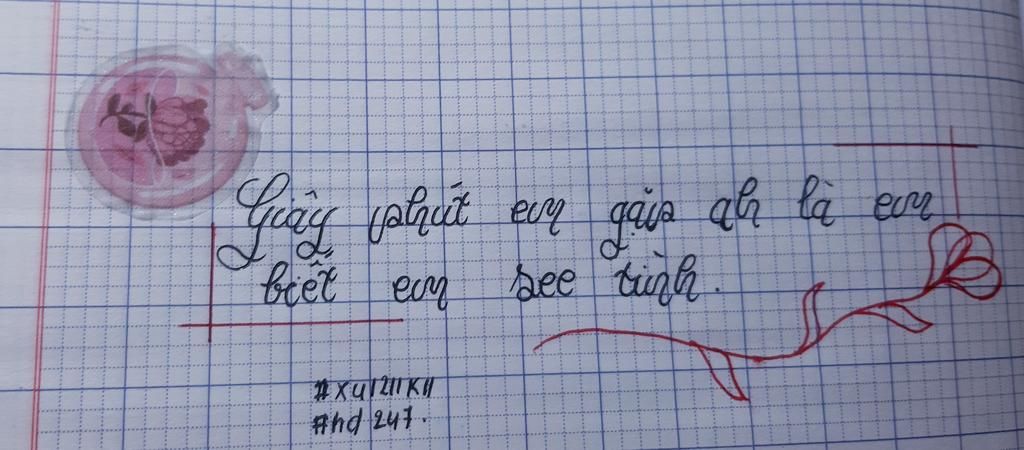 Giây phút em gặp ah là em
biết em see tình.
#xu1211k11
#hd 247.